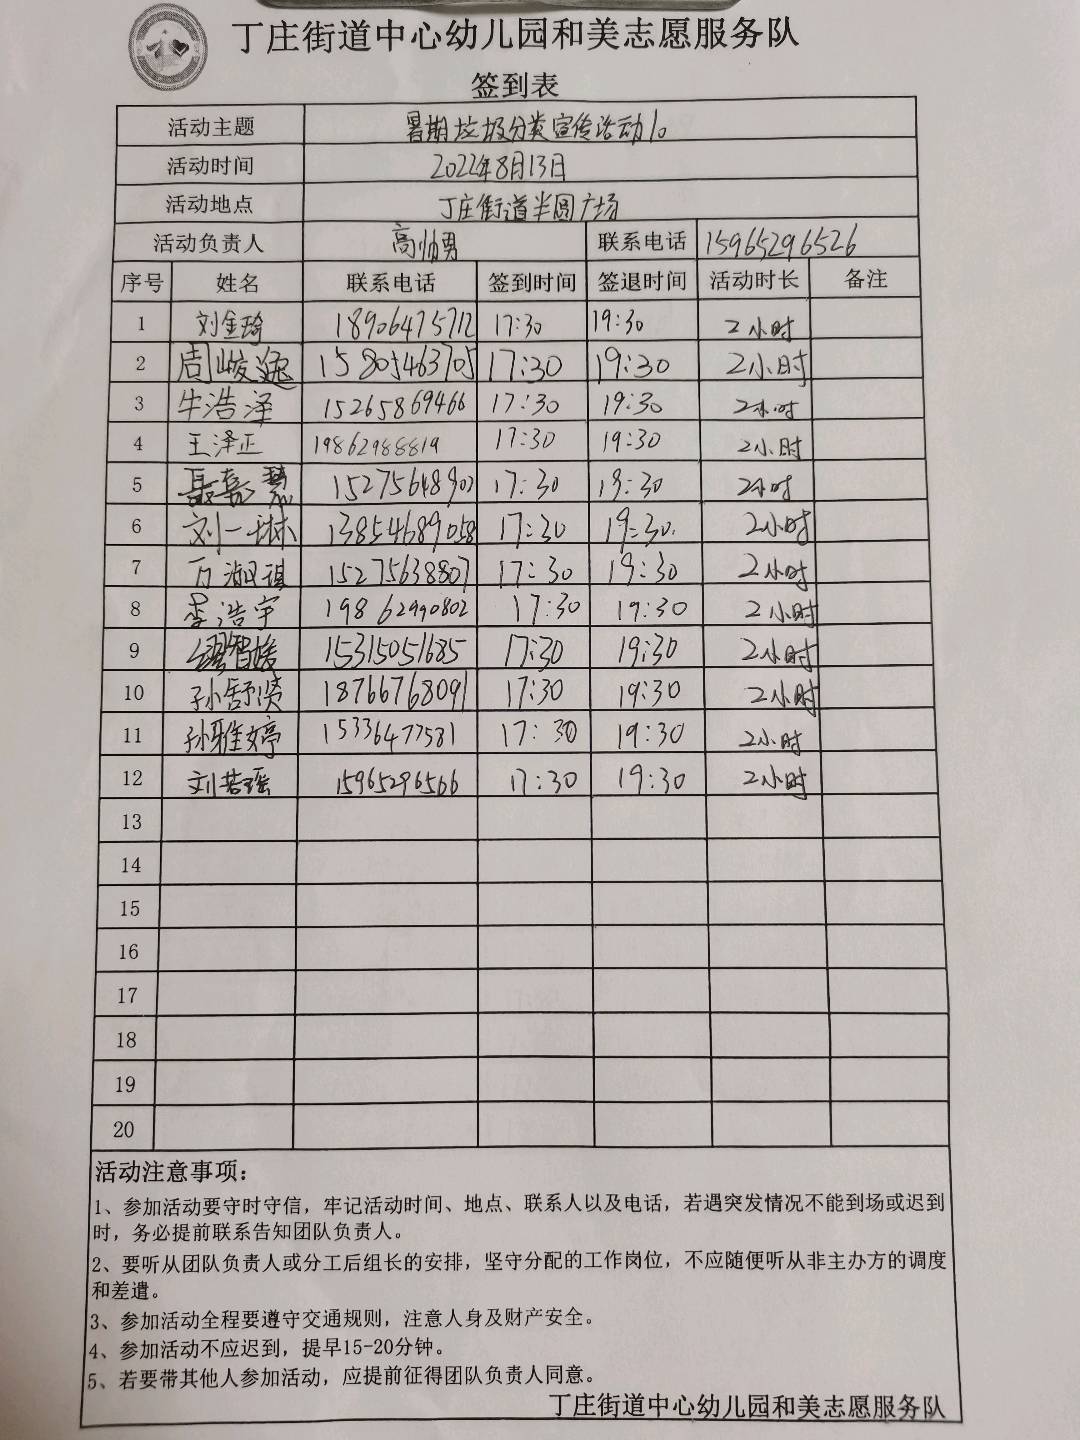 丁庄街道中心幼儿园和美志愿服务队
签到表
活动主题 暑期垃圾分类宣传活动10
活动时间 2022年8月13日
活动地点 丁庄街道半圆广场
活动负责人 高帅男 联系电话 15965296526
序号 姓名 联系电话 签到时间 签退时间 活动时长 备注
1 刘金琦 18906475712 17:30 19:30 2小时
2 周峻逸 15805463705 17:30 19:30 2小时
3 牛浩泽 15265869466 17:30 19:30 2小时
4 王泽正 19862988819 17:30 19:30 2小时
5 聂嘉 15275648902 17:30 19:30 2小时
6 刘一琳 13854689058 17:30 19:30 2小时
7 淑琪 15275638807 17:30 19:30 2小时
8 李浩宇 19862990802 17:30 19:30 2小时
9 智媛 15315051685 17:30 19:30 2小时
10 孙舒 18766768091 17:30 19:30 2小时
11 孙雅婷 15336477581 17:30 19:30 2小时
12 刘若瑶 15965296566 17:30 19:30 2小时
13
14
15
16
17
18
19
20
活动注意事项：
1、参加活动要守时守信，牢记活动时间、地点、联系人以及电话，若遇突发情况不能到场或迟到
时，务必提前联系告知团队负责人。
2、要听从团队负责人或分工后组长的安排，坚守分配的工作岗位，不应随便听从非主办方的调度
和差遣。
3、参加活动全程要遵守交通规则，注意人身及财产安全。
4、参加活动不应迟到，提早15-20分钟。
5、若要带其他人参加活动，应提前征得团队负责人同意。
丁庄街道中心幼儿园和美志愿服务队